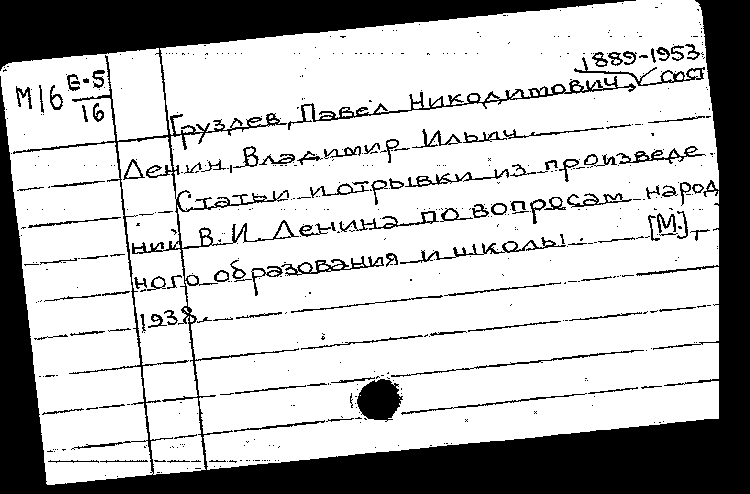 1889-1953
М16 В-5
16
Груздев, Павел Никодимович, сост
Ленин, Владимир Ильич.
Статьи и отрывки из произведе
ний В. И. Ленина по вопросам народ
ного образования и школы. [М.],
1938.